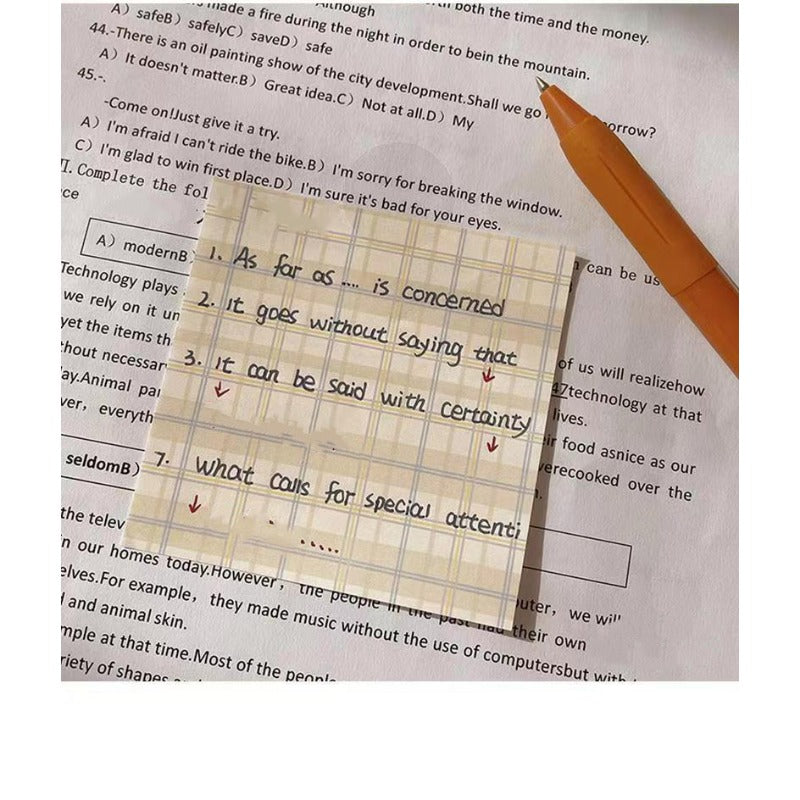 both the time and the money.
made a fire during the night in order to bein the mountain.
Although
A）safeB）safelyC）saveD）safe
44.-There is an oil painting show of the city development.Shall we go orrow?
A）It doesn't matter.B）Great idea.C）Not at all.D）My
45.-.
-Come on!Just give it a try.
A）I'm afraid I can't ride the bike.B）I'm sorry for breaking the window.
C）I'm glad to win first place.D）I'm sure it's bad for your eyes.
II. Complete the fol
ce
can be us
A）modernB）
1. As far as .... is concerned
2. it goes without saying that
3. it can be said with certainty
7. what calls for special attenti
.....
Technology plays
of us will realizehow
we rely on it un
47technology at that
yet the items th
lives.
thout necessar
eir food asnice as our
ay.Animal pa
erecooked over the
ver, everyth
seldomB）
the telev
uter, we will
n our homes today.However, the people in the past had their own
elves.For example, they made music without the use of computersbut with
and animal skin.
mple at that time.Most of the people
riety of shapes